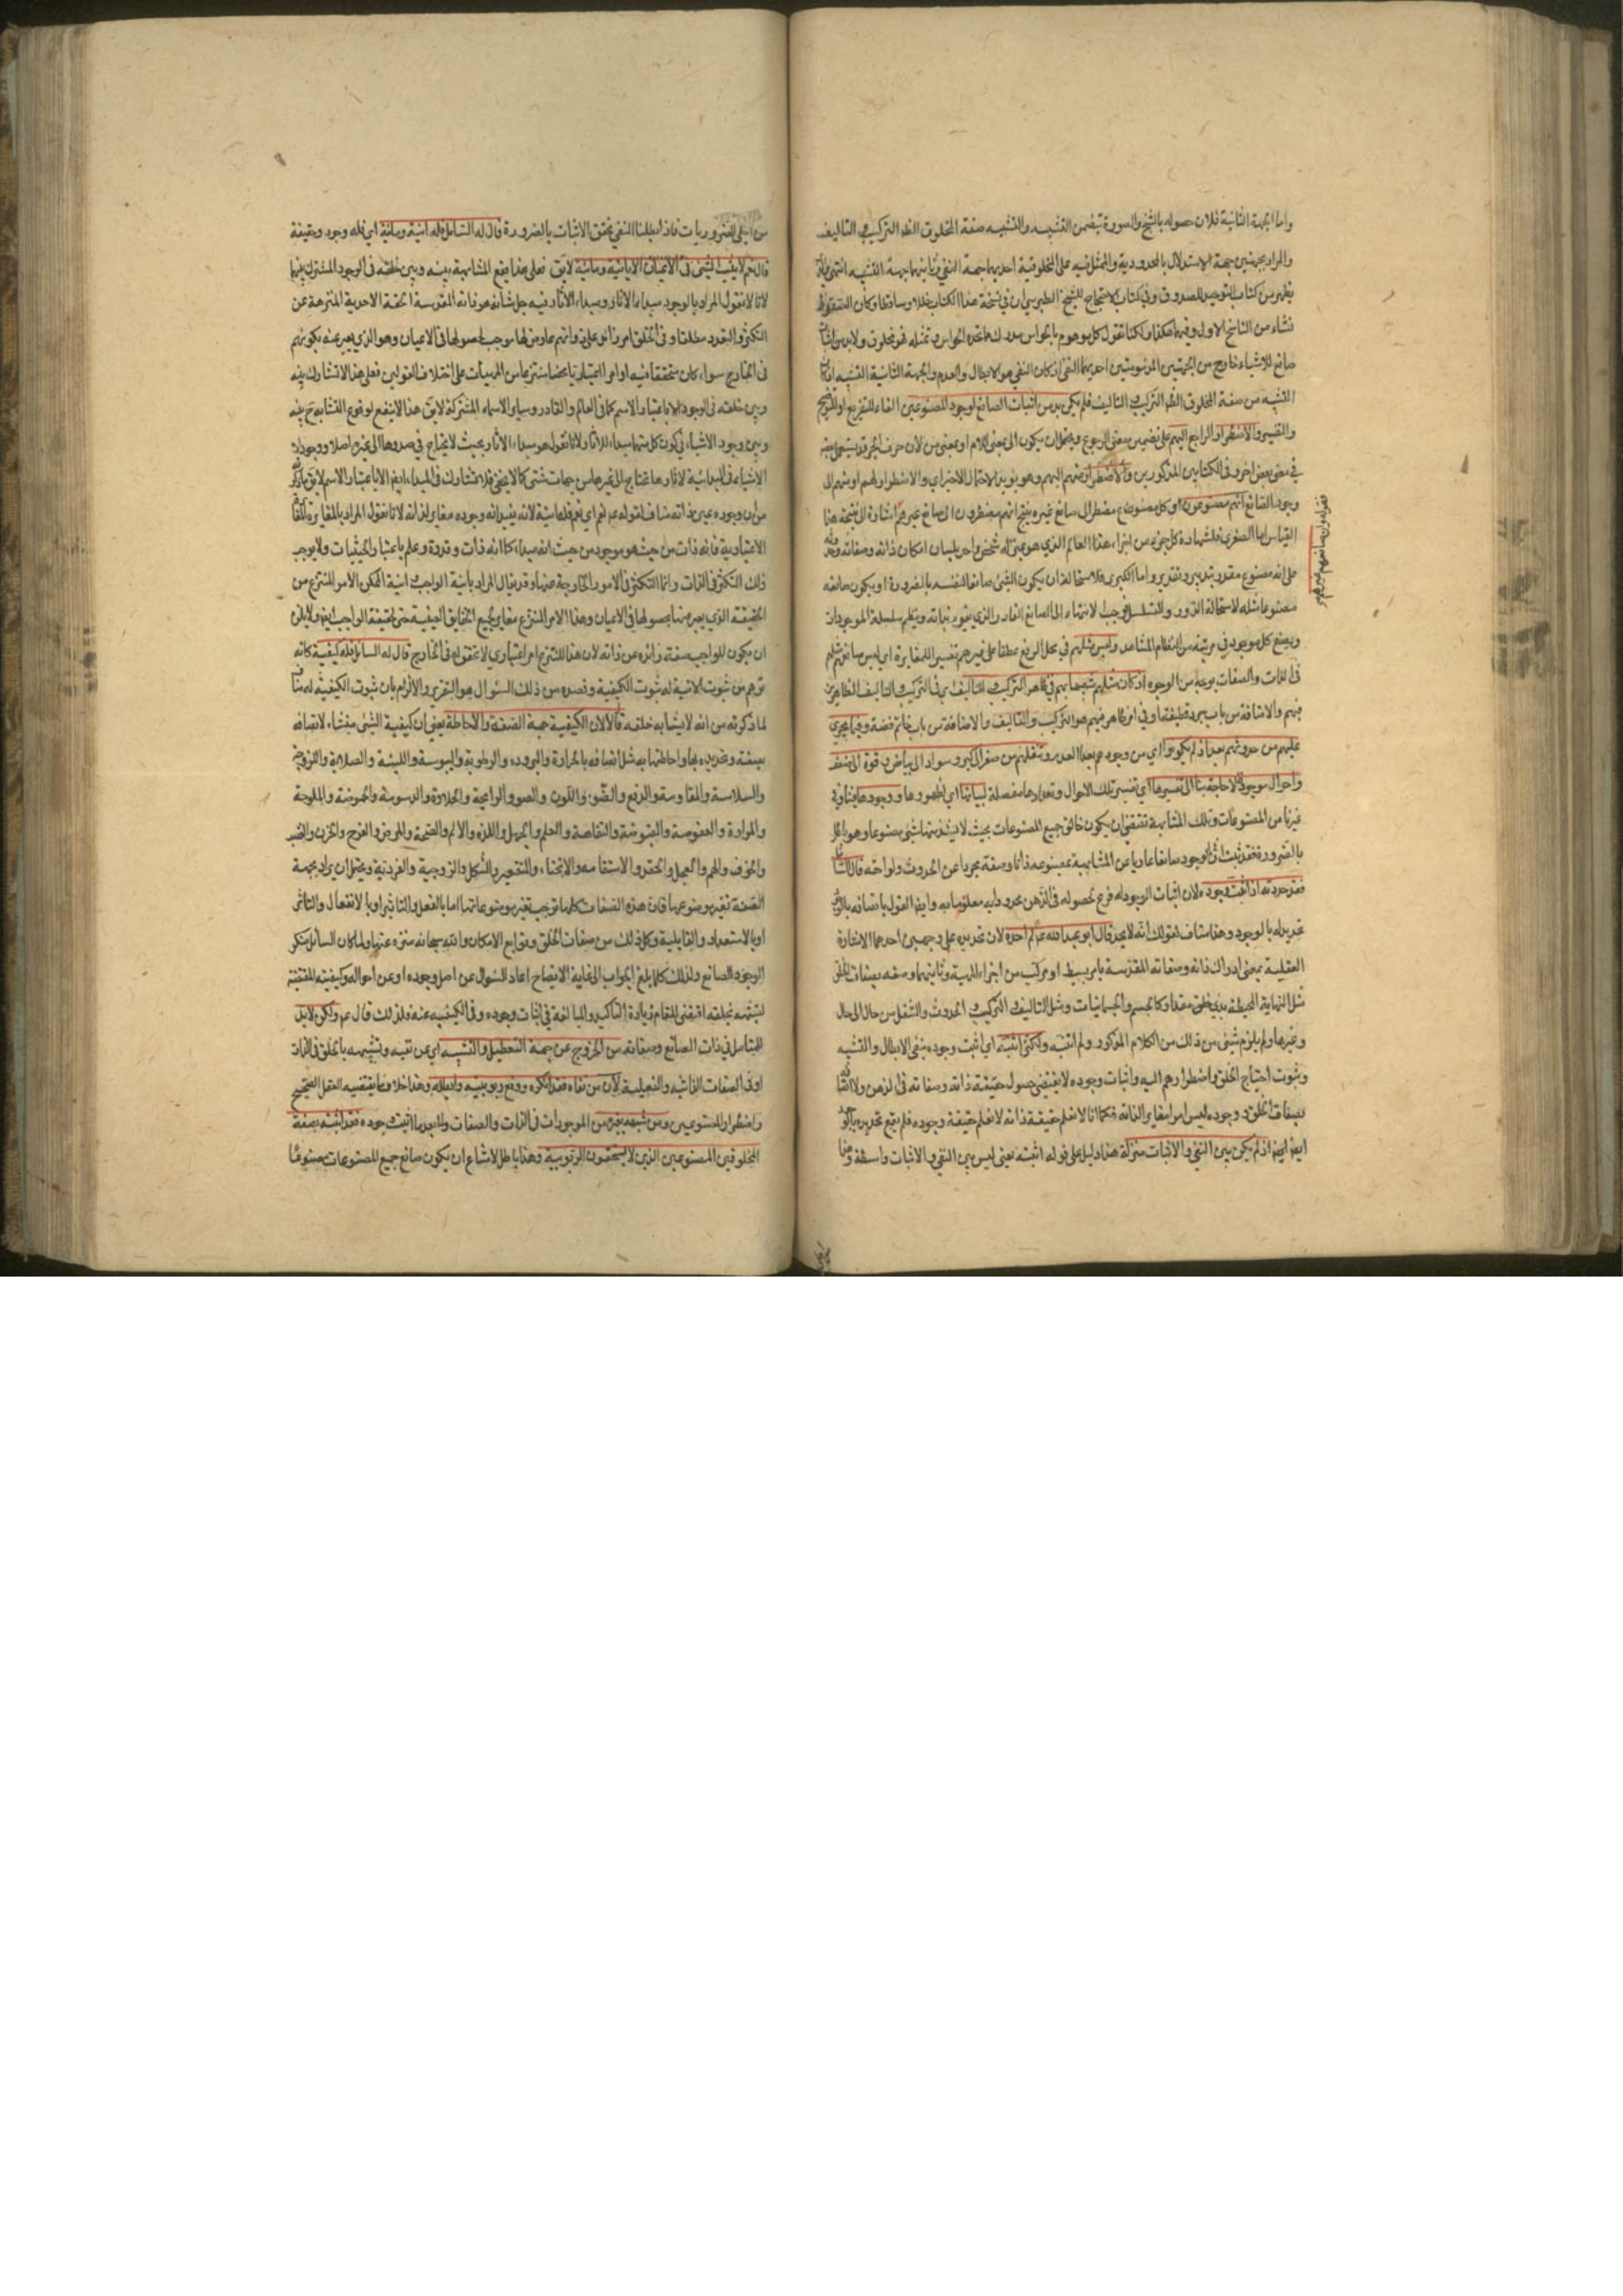 واما الجهة الثانية فلان حصوله بالشبح والصورة يتضمن التشبيه والتشبيه صفة المخلوق الظاهر التركيب والتاليف
والمراد بجهتين جهة الاستدلال بالمحدودية والتمثل فيه على المخلوقية احديهما جهة النفي وثانيهما جهة التشبيه انتهى
يظهر من كتاب التوحيد للصدوق وفي كتاب الاحتجاج للشيخ الطبرسي ان في نسخة هذا الكتاب خللا وساقطا وكان السقوط
نشاء من الناسخ الاول وفيهما هكذا ولكنا نقول كل موهوم بالحواس مدرك بها تحده الحواس وتمثله فهو مخلوق ولابد من اثبات
صانع للاشياء خارج من الجهتين المذمومتين احديهما النفي اذ كان النفي هو الابطال والعدم والجهة الثانية التشبيه اذ كان
التشبيه من صفة المخلوق الظاهر التركيب والتاليف فلم يكن بد من اثبات الصانع لوجود المصنوعين الفاء للتفريع او للتوضيح
والتفسير والاضطرار الراجع اليهم على تضمين معنى الرجوع ويحتمل ان يكون الى بمعنى اللام او بمعنى من لان حروف الجر قد يستعمل بعضها
في معنى بعض اخر وفي الكتابين المذكورين والاضطرار منهم اليهم وهو يؤيد الاحتمال الاخير اي والاضطرار لهم او منهم الى
وجود الصانع انهم مصنوعون وكل مصنوع مضطر الى صانع غيره ينتج انهم مضطرون الى صانع غيرهم اشارة الى نتيجة هذا
القياس اما الصغرى فلشهادة كل جزء من اجزاء هذا العالم الذي هو بمنزلة شخص واحد بلسان امكان ذاته وصفاته
على انه مصنوع مقدر بتدبير وتقدير واما الكبرى فلاستحالة ان يكون الشئ صانعا لنفسه بالضرورة او يكون صانعه
مصنوعا مثله لاستحالة الدور والتسلسل فوجب الانتهاء الى الصانع القادر الذي يقوم بذاته وينظم سلسلة الموجودات
ويضع كل موجود في مرتبته من النظام المشاهد وليس مثلهم في محل الرفع عطفا على غيرهم تفسير للمغايرة اي ليس صانعهم مثلهم
في الذات والصفات بوجه من الوجوه اذ كان مثلهم شبيها بهم في ظاهر التركيب والتاليف اي في التركيب والتاليف الظاهرين
فيهم والاضافة من باب جرد قطيفة وفي اذ ظاهر فيهم هو التركيب والتاليف والاضافة من باب خاتم فضة وفيما يجري
عليهم من حدوثهم بعد اذ لم يكونوا اي من وجودهم بعد العدم وتنقلهم من صغر الى كبر وسواد الى بياض وقوة الى ضعف
واحوال موجودة لا حاجة بنا الى تفسيرها اي تفسير تلك الاحوال وتعدادها مفصلة لبيانها اي لظهورها ووجودها فينا وفي
غيرنا من المصنوعات وتلك المشابهة تقتضي ان يكون خالق جميع المصنوعات بحيث لا يشذ منها شئ مصنوعا وهو باطل
بالضرورة فقد ثبت ان الموجود صانعا عاريا عن المشابهة بمصنوعه ذاتا وصفة مجردا عن الحدوث ولواحقه قال السائل
فقد حددته اذ اثبت وجوده لان اثبات الوجود له فرع لحصوله في الذهن محدود به معلوما به وايضا القول باتصافه بالوجود
تحديد له بالوجود وهذا مناف لقولك انه لا يحد قال ابو عبد الله ع لم احده لان تحديده على وجهين احدهما الاشارة
العقلية بمعنى ادراك ذاته وصفاته المقدسة بامر بسيط او مركب من اجزاء الماهية وثانيهما وصفه بصفات الخلق
مثل النهاية المحيطة بذي خلق مقدار كالجسم والجسمانيات ومثل التاليف والتركيب والحدوث والتنقل من حال الى حال
وغيرها ولم يلزم شئ من ذلك من الكلام المذكور ولم اثبته ولكني اثبته اي اثبت وجوده بنفي الابطال والتشبيه
وثبوت احتياج الخلق واضطرارهم اليه واثبات وجوده لا يقتضي حصول حقيقة ذاته وصفاته في الذهن ولا اتصافه
بصفات الخلق ووجوده ليس امرا مغايرا لذاته فكما انا لا نعلم حقيقة ذاته لا نعلم حقيقة وجوده فلم يقع تحديده بالوجود
ايضا اذ لم يكن بين النفي والاثبات منزلة هذا دليل على قوله اثبته يعني ليس بين النفي والاثبات واسطة وهذا
فقوله وان صانعهم غيرهم
من اجلى الضروريات فاذا بطلنا النفي تحقق الاثبات بالضرورة قال له السائل فله انية ومائية اي فله وجود وحقيقة
قال نعم لا يثبت الشئ في الاعيان الا بانية ومائية لا يق فعلى هذا يقع المشابهة بينه وبين خلقه في الوجود المشترك بينهما
لانا لا نقول المراد بالوجود مبداء الاثار ومبداء الاثار فيه جل شانه هو ذاته المقدسة الحقة الاحدية المنزهة عن
التكثر والتعدد مطلقا وفي الخلق امر زائد على ذواتهم عارض لها موجب لحصولها في الاعيان وهو الذي يعبر عنه بكونهم
في الخارج سواء كان متحققا فيه او امرا اعتباريا محضا منتزعا من المهيات على اختلاف القولين فعلى هذا لا تشارك بينه
وبين خلقه في الوجود الا باعتبار الاسم كما في العالم والقادر وساير الاسماء المشتركة لا يق هذا لا ينفع لوقوع التشابه ح بينه
وبين وجود الاشياء في كون كل منهما مبداء للاثار ولانا نقول هو مبداء الاثار بحيث لا يحتاج في صدورها الى غيره اصلا ووجود
الاشياء في المبدائية لاثارها تحتاج الى غيرها من جهات شتى كما لا يخفى فلا تشارك في المبداء ايضا الا باعتبار الاسم لا يق ما ذكرت
من ان وجوده عين ذاته مناف لقوله ع نعم اي نعم فله مائية لانه يفيد انه وجوده مغاير لذاته لانا نقول المراد بالمغايرة المغايرة
الاعتبارية فانه ذات من حيث هو موجود من حيث انه مبداء كما انه ذات وقدرة وعلم باعتبار الحيثيات ولا يوجب
ذلك التكثر في الذات وانما التكثر في الامور الخارجة عنها وقد يقال المراد بانية الواجب انية الممكن الامر المنتزع من
الحقيقة الذي يعبر عنها بحصولها في الاعيان وهذا الامر المنتزع مغاير لجميع الحقايق العينية حتى لحقيقة الواجب ايضا ولا يلزم
ان يكون للواجب صفة زائدة عن ذاته لان هذا المنتزع امر اعتباري لا تحقق له في الخارج قال له السائل فله كيفية كانه
توهم من ثبوت الانية له ثبوت الكيفية وقصده من ذلك السئوال هو التقرير والالزام بان ثبوت الكيفية له مناف
لما ذكرته من انه لا يشابه خلقه قال لا لان الكيفية جهة الصفة والاحاطة يعني ان كيفية الشئ منشاء لاتصافه
بصفة وتحديده بها واحاطتها به مثل اتصافه بالحرارة والبرودة والرطوبة واليبوسة واللينة والصلابة واللزوجة
والسلاسة والمقاومة والدفع والضوء واللون والصوت والرايحة والحلاوة والدسومة والحموضة والملوحة
والمرارة والعفوصة والقبوضة والتفاهة والعلم والجهل واللذة والالم والصحة والمرض والفرح والحزن والغضب
والخوف والهم والخجل والحقد والاستقامة والانحناء والتقعير والشكل والزوجية والفردية ويحتمل ان يراد بجهة
الصفة تغير موضوعها فان هذه الصفات كلها توجب تغير موضوعاتها اما بالفعل والتاثير او بالانفعال والتاثر
او بالاستعداد والقابلية وكل ذلك من صفات الخلق وتوابع الامكان والله سبحانه منزه عنها ولما كان السائل منكرا
لوجود الصانع ولذلك كلما بلغ الجواب الى غاية الايضاح اعاد السئوال عن اصل وجوده او عن احواله وكيفيته المقتضية
لتشبهه بخلقه اقتضى المقام زيادة التاكيد والمبالغة في اثبات وجوده ونفي الكيفية عنه فلذلك قال ع ولكن لابد
للمتامل في ذات الصانع وصفاته من الخروج عن جهة التعطيل والتشبيه اي عن نفيه وتشبيهه بالخلق في الذات
او في الصفات الذاتية والفعلية لان من نفاه فقد انكره ودفع ربوبيته وابطله وهذا خلاف ما يقتضيه العقل الصحيح
واضطرار المصنوعين ومن شبهه بغيره من الموجودات في الذات والصفات وان اثبت وجوده فقد اثبته بصفة
المخلوقين المصنوعين الذين لا يستحقون الربوبية وهذا باطل لامتناع ان يكون صانع جميع المصنوعات مصنوعا